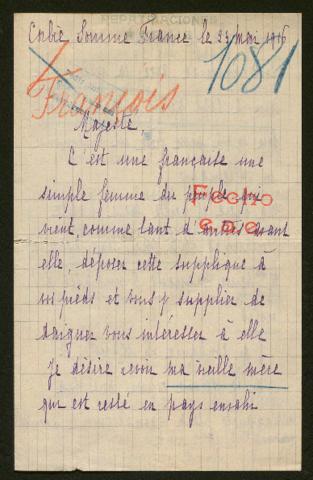 Corbie, Somme France le 23 mai 1916
1081
François
Majesté,
C'est une française une
simple femme du peuple qui
Fecho
vient, comme tant d'autres avant
e.a.c.
elle, déposer cette supplique à
vos pieds et vous y supplier de
daigner vous intéresser à elle
Je désire revoir ma vieille mère
qui est resté en pays envahi